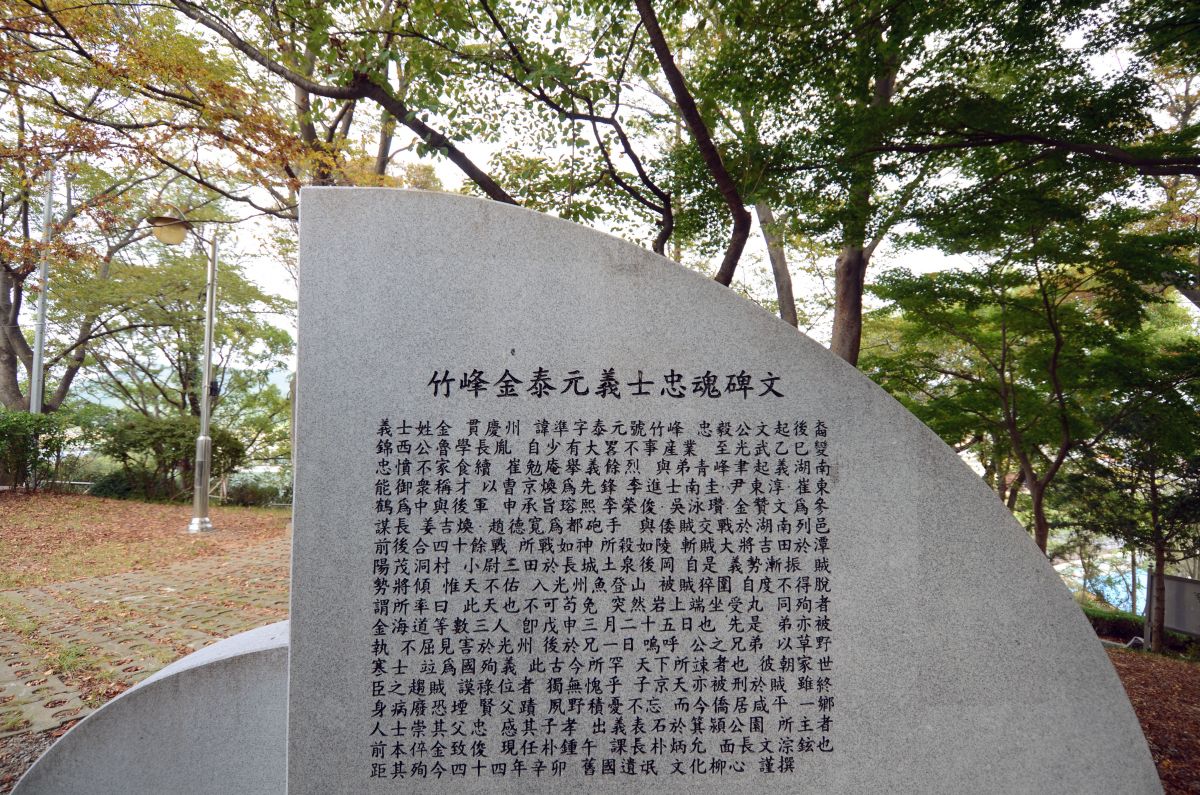 竹峰金泰元義士忠魂碑文
義士姓金 貫慶州 諱準字泰元號竹峰 忠毅公文起後裔
錦西公魯學長胤 自少有大畧不事産業 至光武乙巳變
忠憤不家食續 崔勉庵擧義餘烈 與弟青峰聿起義湖南
能御衆稱才 以曺京煥爲先鋒 李進士南圭·尹東淳·崔東
鶴爲中與後軍 申承旨瑢熙 李榮俊·吳泳瓚·金贊文爲參
謀長 姜吉煥·趙德寬爲都砲手 與倭賊交戰於湖南列邑
前後合四十餘戰 所戰如神 所殺如陵 斬賊大將吉田於潭
陽茂洞村 小尉三田於長城土泉後岡 自是 義勢漸振 賊
勢將傾 惟天不佑 入光州魚登山 被賊猝圍 自度不得脫
謂所率曰 此天也不可苟免 突然岩上端坐受丸 同殉者
金海道等數三人 卽戊申三月二十五日也 先是 弟亦被
執 不屈見害於光州 後於兄一日 嗚呼 公之兄弟 以草野
寒士 竝爲國殉義 此古今所罕 天下所竦者也 彼朝家世
臣之趨賊 謨祿位者 獨無愧乎 子京天亦被刑於賊 雖終
身病廢恐堙 賢父蹟 夙野積憂不忘 而今僑居咸平 一鄉
人士崇其父忠 感其子孝 出義表石於箕潁公園 所主者
前本倅金致俊 現任朴鍾午 課長朴炳允 面長文淙鉉也
距其殉今四十四年辛卯 舊國遺氓 文化柳心 謹撰